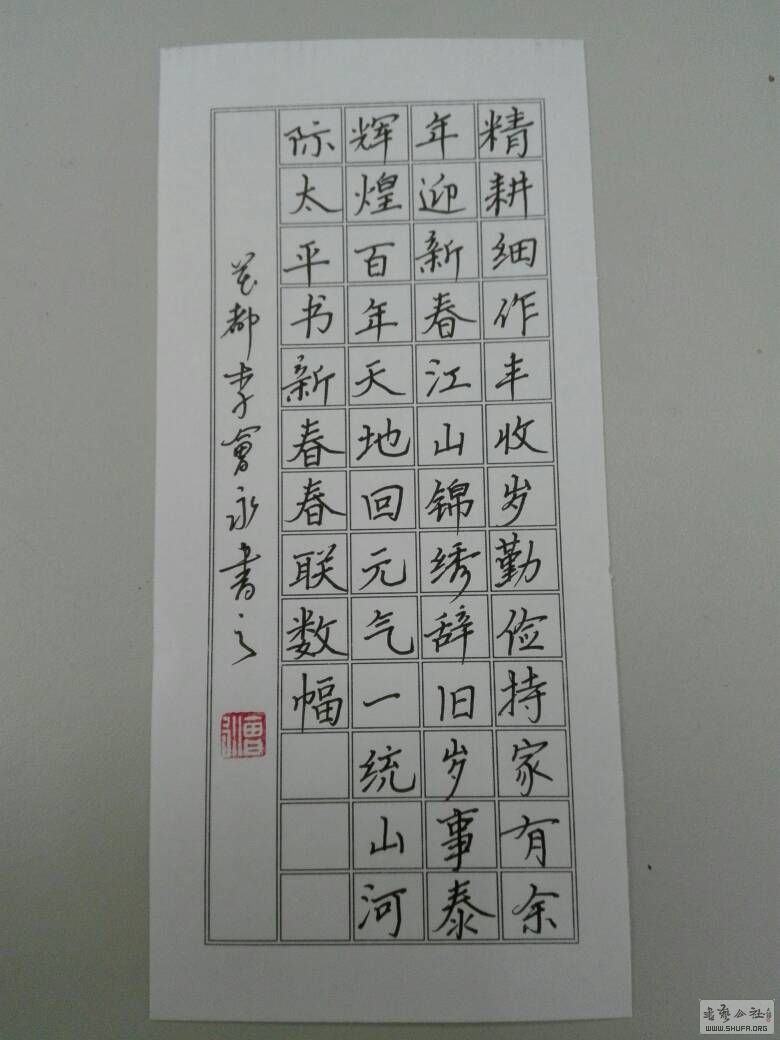 精耕细作丰收岁勤俭持家有余
年迎新春江山锦绣辞旧岁事泰
辉煌百年天地回元气一统山河
际太平书新春春联数幅
花都李曾永书之
书艺公社
WWW.SHUFA.ORG